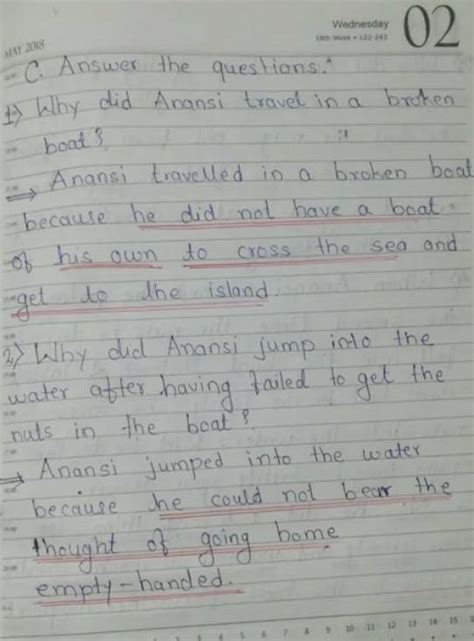 Wednesday
02
MAY 2018
18th Week • 122-243
C. Answer the questions:
1) Why did Anansi travel in a broken
boat?
Anansi travelled in a broken boat
because he did not have a boat
of his own to cross the sea and
get to the island.
2) Why did Anansi jump into the
water after having failed to get the
nuts in the boat?
Anansi jumped into the water
because he could not bear the
thought of going home
empty-handed.
7 8 9 10 11 12 13 14 15